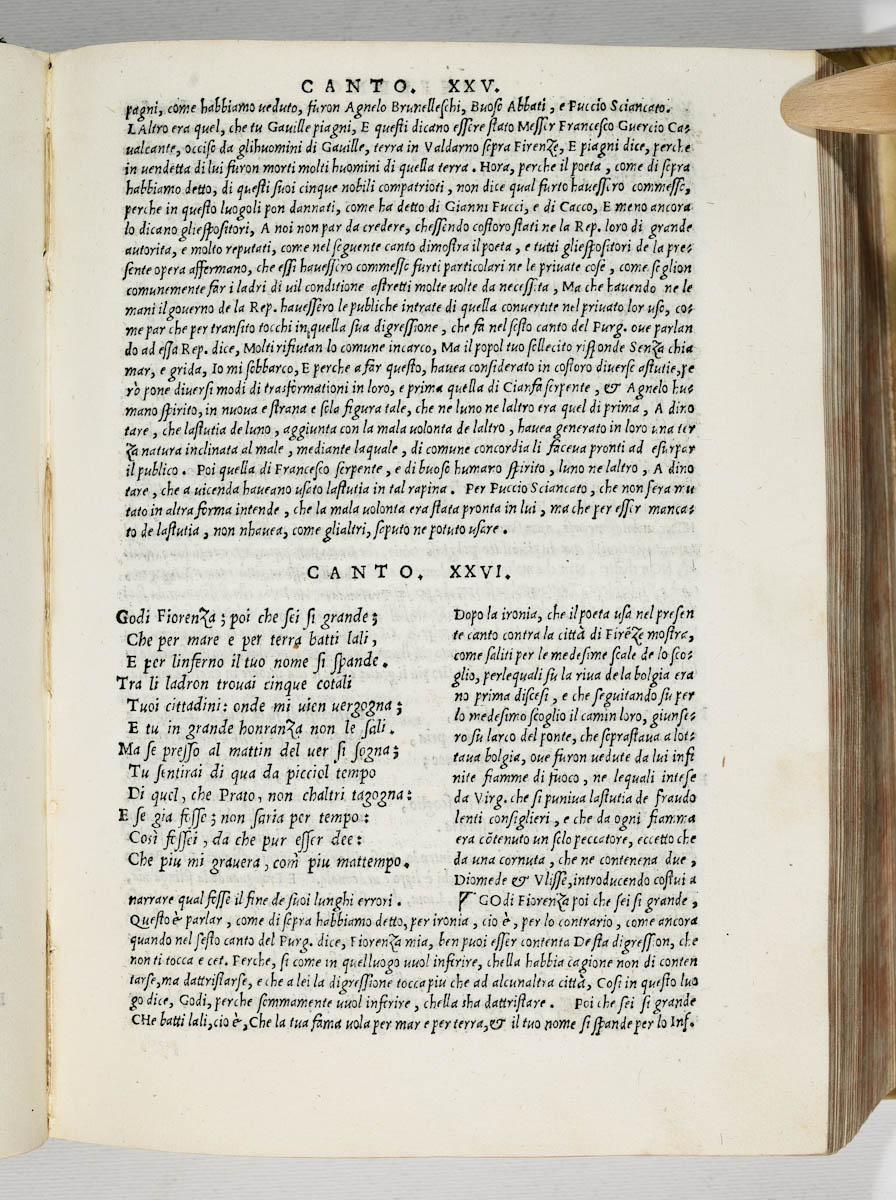 CANTO. XXV.
pagni, come habbiamo ueduto, furon Agnelo Brunelleschi, Buoso Abbati, e Puccio Sciancato.
LAltro era quel, che tu Gauille piagni, E questi dicano essere stato Messer Francesco Guercio Ca-
ualcante, occiso da glihuomini di Gauille, terra in Valdarno sopra Firenze, E piagni dice, perche
in uendetta di lui furon morti molti huomini di quella terra. Hora, perche il poeta, come di sopra
habbiamo detto, di questi suoi cinque nobili compatrioti, non dice qual furto hauessero commesso,
perche in questo luogo li pon dannati, come ha detto di Gianni Fucci, e di Cacco, E meno ancora
lo dicano gliespositori, A noi non par da credere, chessendo costoro stati ne la Rep. loro di grande
autorita, e molto reputati, come nel seguente canto dimostra il poeta, e tutti gliespositori de la pre-
sente opera affermano, che essi hauessero commesso furti particolari ne le priuate cose, come soglion
comunemente far i ladri di uil conditione astretti molte uolte da necessita, Ma che hauendo ne le
mani il gouerno de la Rep. hauessero le publiche intrate di quella conuertite nel priuato lor uso, co-
me par che per transito tocchi in quella sua digressione, che fa nel sesto canto del Purg. oue parlan
do ad essa Rep. dice, Molti rifiutan lo comune incarco, Ma il popol tuo sollecito risponde Senza chia
mar, e grida, Io mi sobbarco, E perche a far questo, hauea considerato in costoro diuerse astutie, pe
rò pone diuersi modi di trasformationi in loro, e prima quella di Cianfa serpente, & Agnelo hu-
mano spirito, in nuoua e strana e sola figura tale, che ne luno ne laltro era quel di prima, A dino
tare, che lastutia de luno, aggiunta con la mala uolonta de laltro, hauea generato in loro una ter
za natura inclinata al male, mediante laquale, di comune concordia li faceua pronti ad esurpar
il publico. Poi quella di Francesco serpente, e di buoso humano spirito, luno ne laltro, A dino
tare, che a uicenda haueano usato lastutia in tal rapina. Per Puccio Sciancato, che non sera mu
tato in altra forma intende, che la mala uolonta era stata pronta in lui, ma che per esser manca-
to de lastutia, non nhauea, come glialtri, saputo ne potuto usare.
CANTO. XXVI.
Godi Fiorenza; poi che sei si grande;
Che per mare e per terra batti lali,
E per linferno il tuo nome si spande.
Tra li ladron trouai cinque cotali
Tuoi cittadini: onde mi uien uergogna;
E tu in grande honranza non le sali.
Ma se presso al mattin del uer si sogna;
Tu sentirai di qua da picciol tempo
Di quel, che Prato, non chaltri tagogna:
E se gia fosse; non saria per tempo:
Così fossei, da che pur esser dee:
Che piu mi grauera, com piu mattempo.
Dopo la ironia, che il poeta usa nel presen
te canto contra la città di Firẽze mostra,
come saliti per le medesime scale de lo sco-
glio, perlequali su la riua de la bolgia era
no prima discesi, e che seguitando su per
lo medesimo scoglio il camin loro, giunse-
ro su larco del ponte, che soprastaua a lot-
taua bolgia, oue furon uedute da lui infi
nite fiamme di fuoco, ne lequali intese
da Virg. che si puniua lastutia de fraudo
lenti consiglieri, e che da ogni fiamma
era cõtenuto un solo peccatore, eccetto che
da una cornuta, che ne contenena due,
Diomede & Vlisse, introducendo costui a
narrare qual fosse il fine de suoi lunghi errori. GOdi Fiorenza poi che sei si grande,
Questo è parlar, come di sopra habbiamo detto, per ironia, cio è, per lo contrario, come ancora
quando nel sesto canto del Purg. dice, Fiorenza mia, ben puoi esser contenta Desta digression, che
non ti tocca e cet. Perche, si come in quelluogo uuol inferire, chella habbia cagione non di conten
tarse, ma dattristarse, e che a lei la digressione tocca piu che ad alcunaltra città, Cosi in questo luo
go dice, Godi, perche sommamente uuol inferire, chella sha dattristare. Poi che sei si grande
CHe batti lali, cio è, Che la tua fama uola per mar e per terra, & il tuo nome si spande per lo Inf.